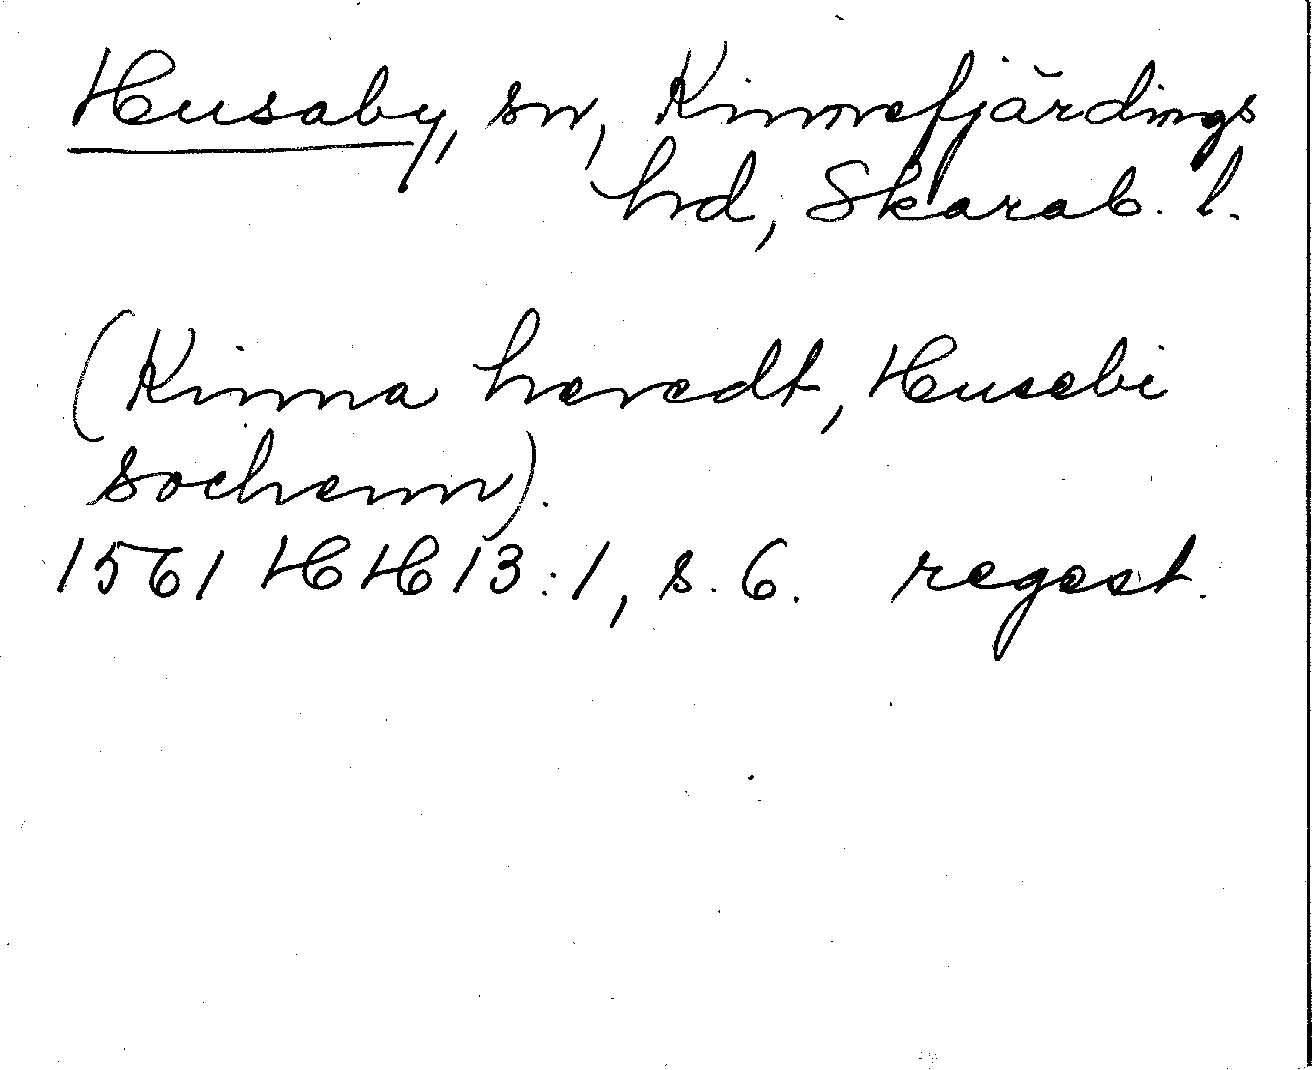 Husaby, sn, Kinnefjärdings
hd, Skarab. l.
(Kinna heredt, Husebi
sochenn).
1561 HH 13:1, s. 6. regest.